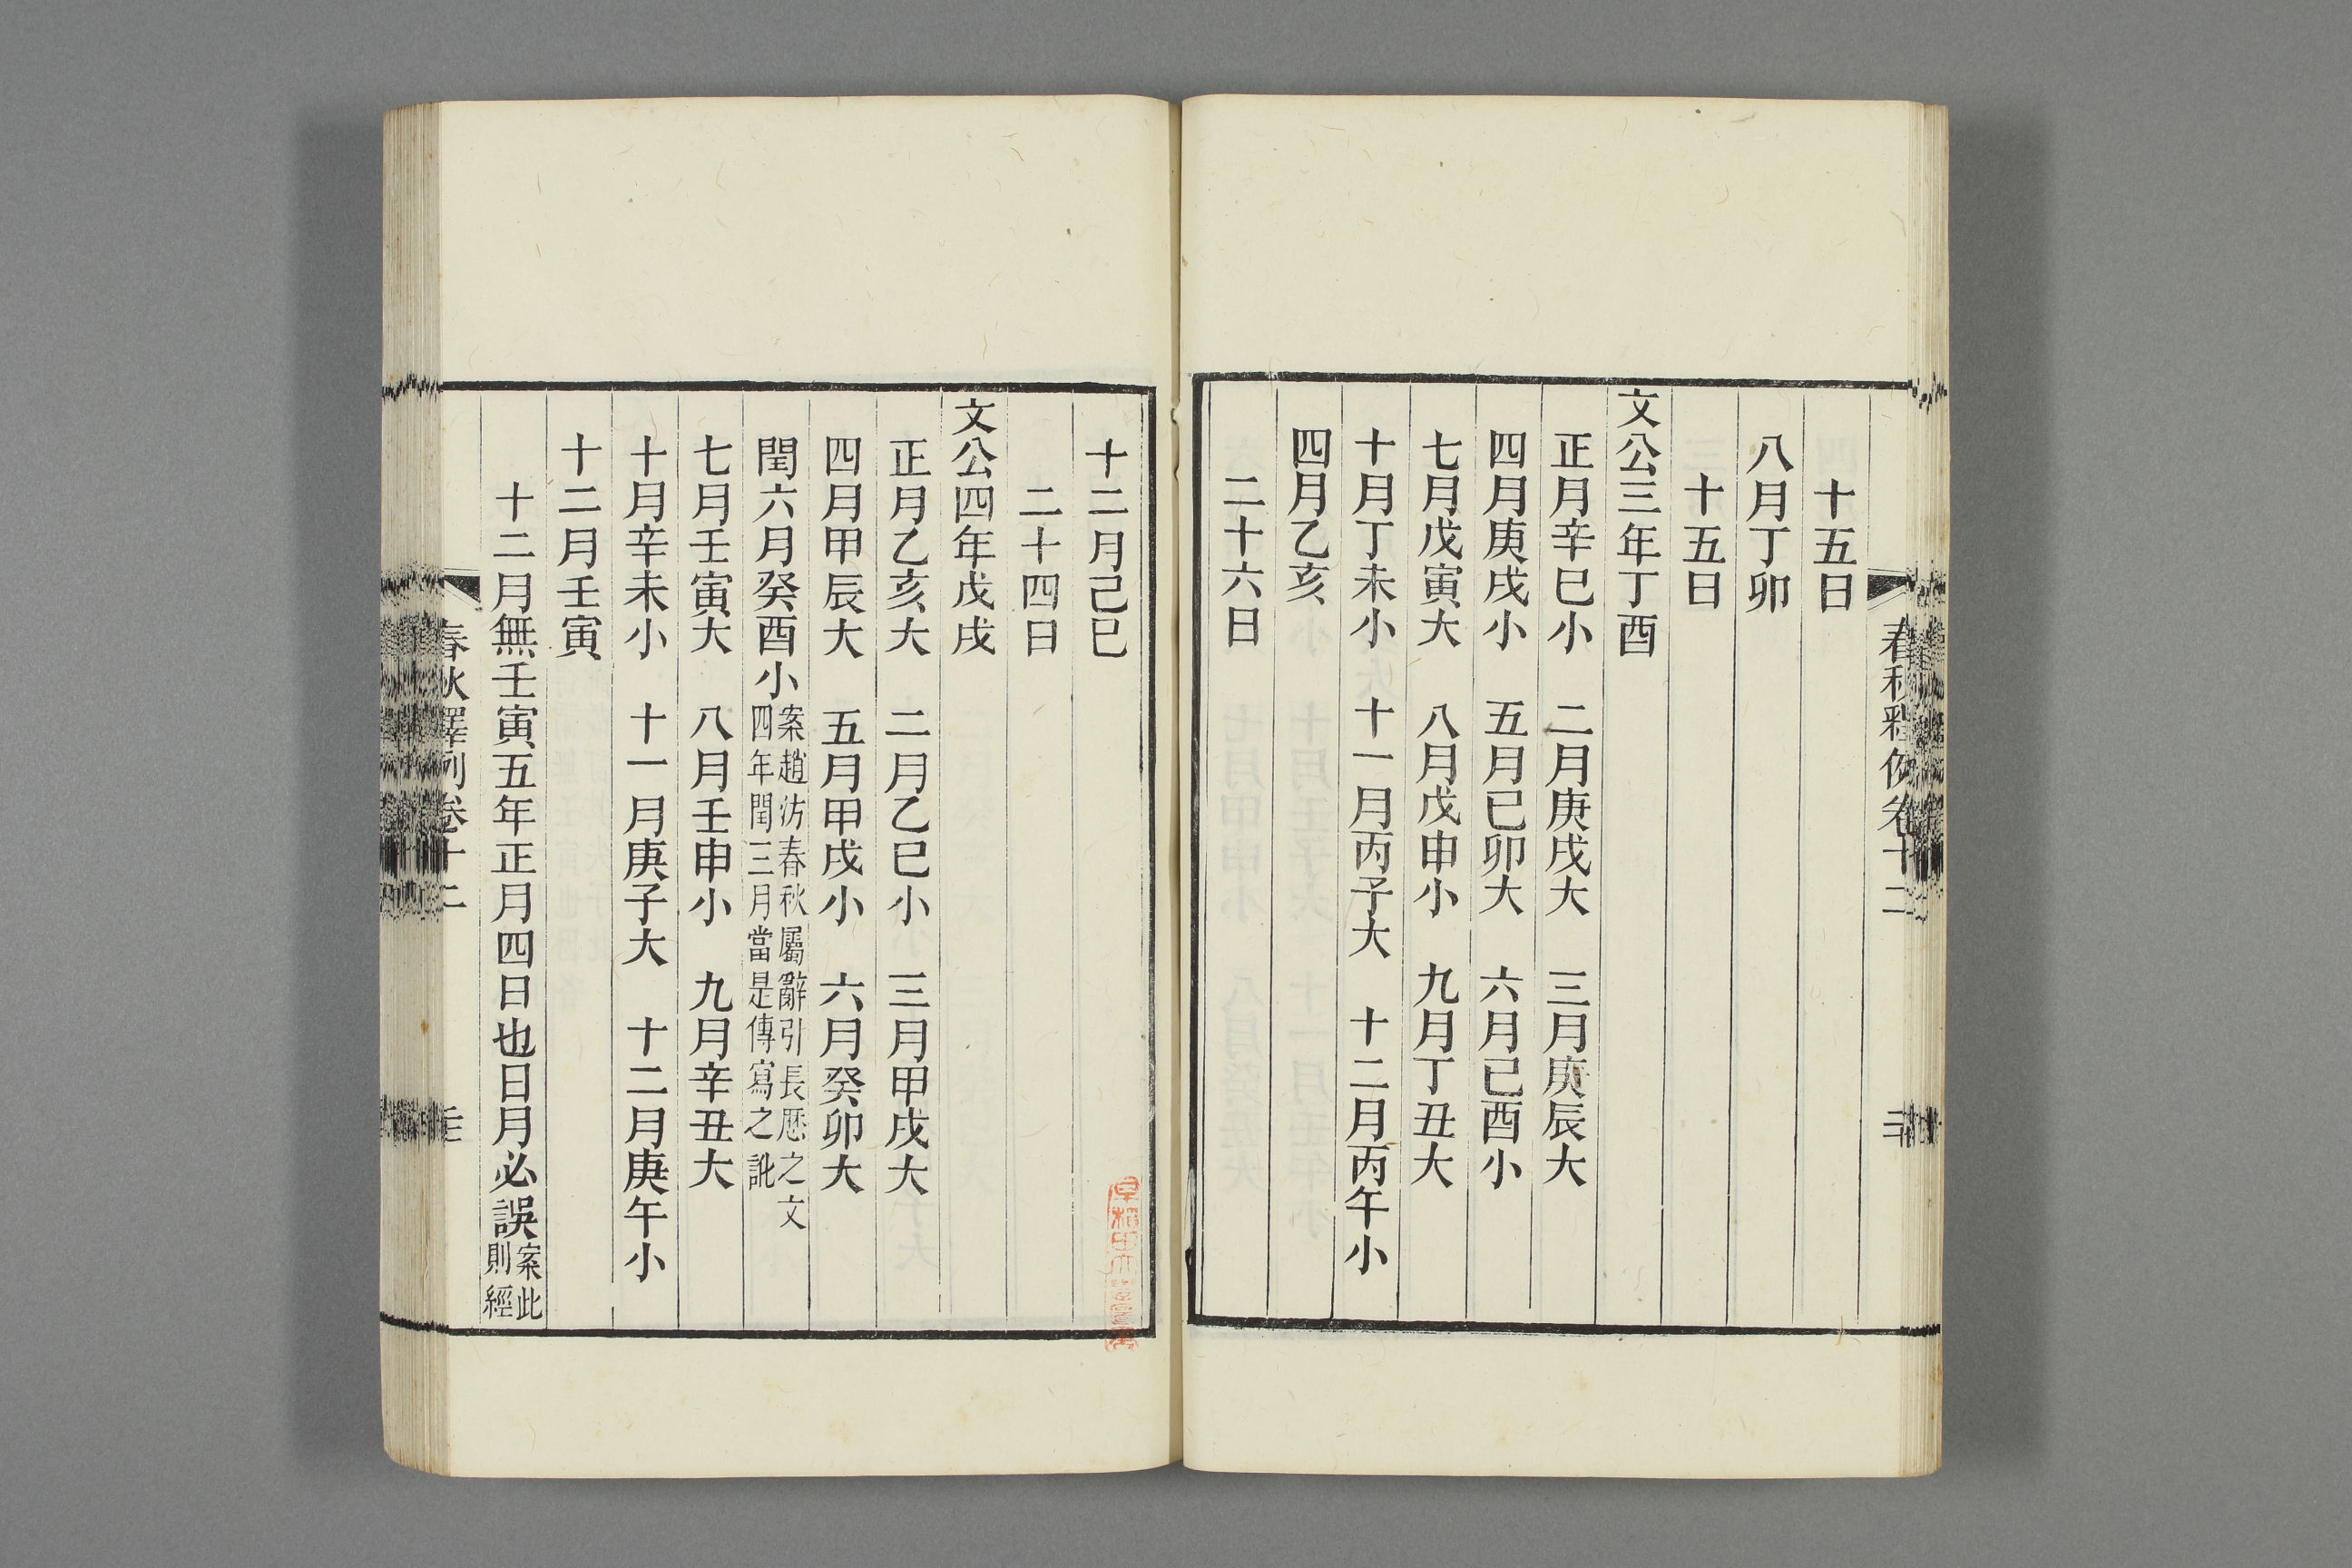 十五日
八月丁卯
十五日
文公三年丁酉
正月辛巳小　二月庚戌大　三月庚辰大
四月庚戌小　五月己卯大　六月己酉小
七月戊寅大　八月戊申小　九月丁丑大
十月丁未小　十一月丙子大　十二月丙午小
四月乙亥
二十六日
十二月己巳
二十四日
文公四年戊戌
正月乙亥大　二月乙巳小　三月甲戌大
四月甲辰大　五月甲戌小　六月癸卯大
閏六月癸酉小案趙汸春秋屬辭引長厯之文
四年閏三月當是傳寫之訛
七月壬寅大　八月壬申小　九月辛丑大
十月辛未小　十一月庚子大　十二月庚午小
十二月壬寅
十二月無壬寅五年正月四日也日月必誤案此
則經
春秋釋例卷十二